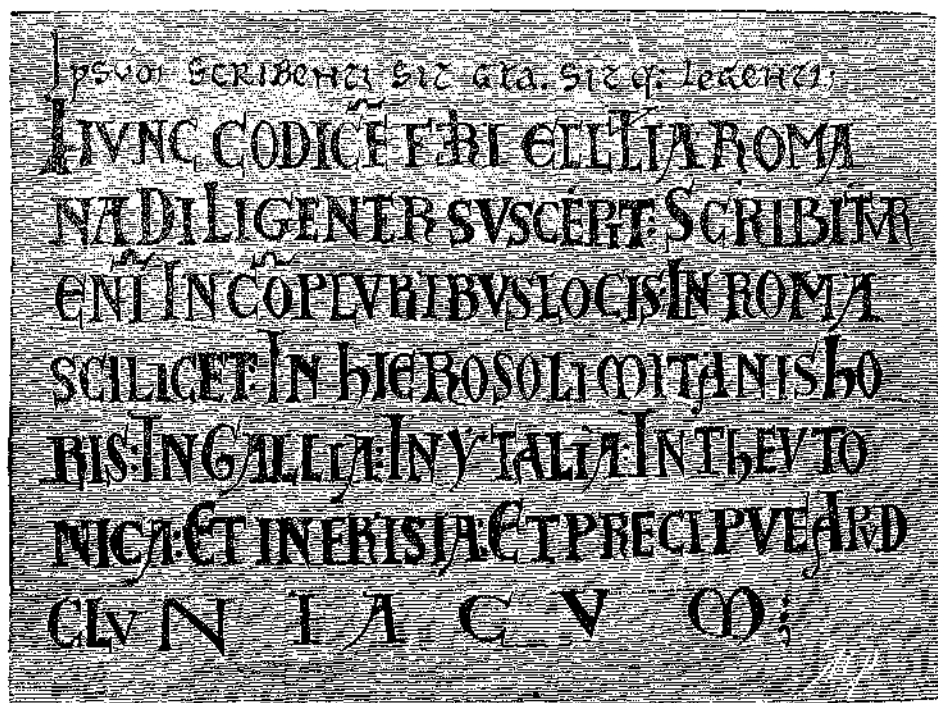 SCRIBENTI SIT GRA. SIT Q: LEGENTI:
HVNC CODICẼ FERI ECLLIA ROMA
NA DILIGENTER SVSCEPIT: SCRIBITVR
ENĨ IN CÕPLVRIBVS LOCIS: IN ROMA
SCILICET: IN hIEROSOLIMITANIS hO
RIS: IN GALLIA: IN YTALIA: IN ThEVTO
NICA: ET IN FRISIA: ET PRECIPVE APVD
CLVNIACVM;